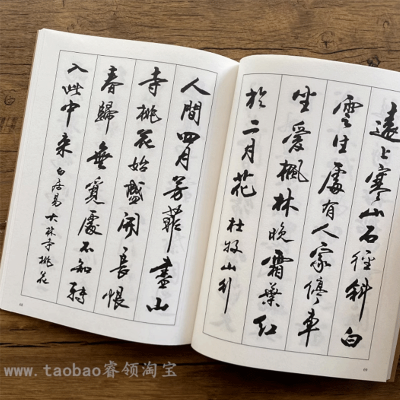 遠上寒山石徑斜白
雲生處有人家停車
坐愛楓林晚霜葉紅
於二月花 杜牧山行
人間四月芳菲盡山
寺桃花始盛開長恨
春歸無覓處不知轉
入此中來 白居易大林寺桃花
www.taobao睿领淘宝